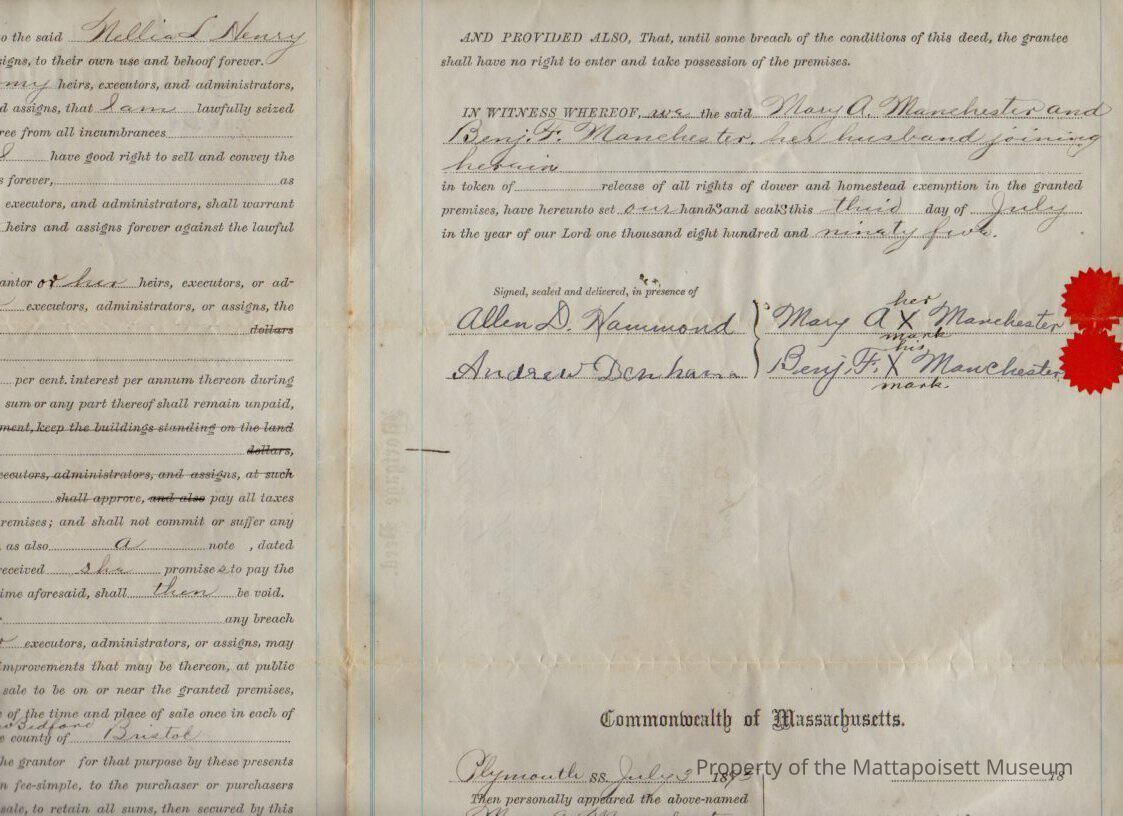 o the said Nellia L Henry
signs, to their own use and behoof forever.
my heirs, executors, and administrators,
d assigns, that I am lawfully seized
ree from all incumbrances
I have good right to sell and convey the
s forever, as
executors, and administrators, shall warrant
heirs and assigns forever against the lawful
antor or her heirs, executors, or ad-
executors, administrators, or assigns, the
dollars
per cent. interest per annum thereon during
sum or any part thereof shall remain unpaid,
ment, keep the buildings standing on the land
dollars,
xecutors, administrators, and assigns, at such
shall approve, and also pay all taxes
remises; and shall not commit or suffer any
as also a note , dated
received she promises to pay the
ime aforesaid, shall then be void.
any breach
executors, administrators, or assigns, may
improvements that may be thereon, at public
sale to be on or near the granted premises,
e of the time and place of sale once in each of
Bedford
e county of Bristol
he grantor for that purpose by these presents
n fee-simple, to the purchaser or purchasers
sale, to retain all sums, then secured by this
AND PROVIDED ALSO, That, until some breach of the conditions of this deed, the grantee
shall have no right to enter and take possession of the premises.
IN WITNESS WHEREOF, we the said Mary A. Manchester and
Benj. F. Manchester, her husband joining
herein
in token of release of all rights of dower and homestead exemption in the granted
premises, have hereunto set our hands and seals this third day of July
in the year of our Lord one thousand eight hundred and ninety five.
Signed, sealed and delivered, in presence of
Allen D. Hammond
Andrew Denham
her
Mary A X Manchester
mark
his
Benj. F. X Manchester
mark.
Commonwealth of Massachusetts.
Plymouth ss. July 3 189 18
Then personally appeared the above-named
Property of the Mattapoisett Museum